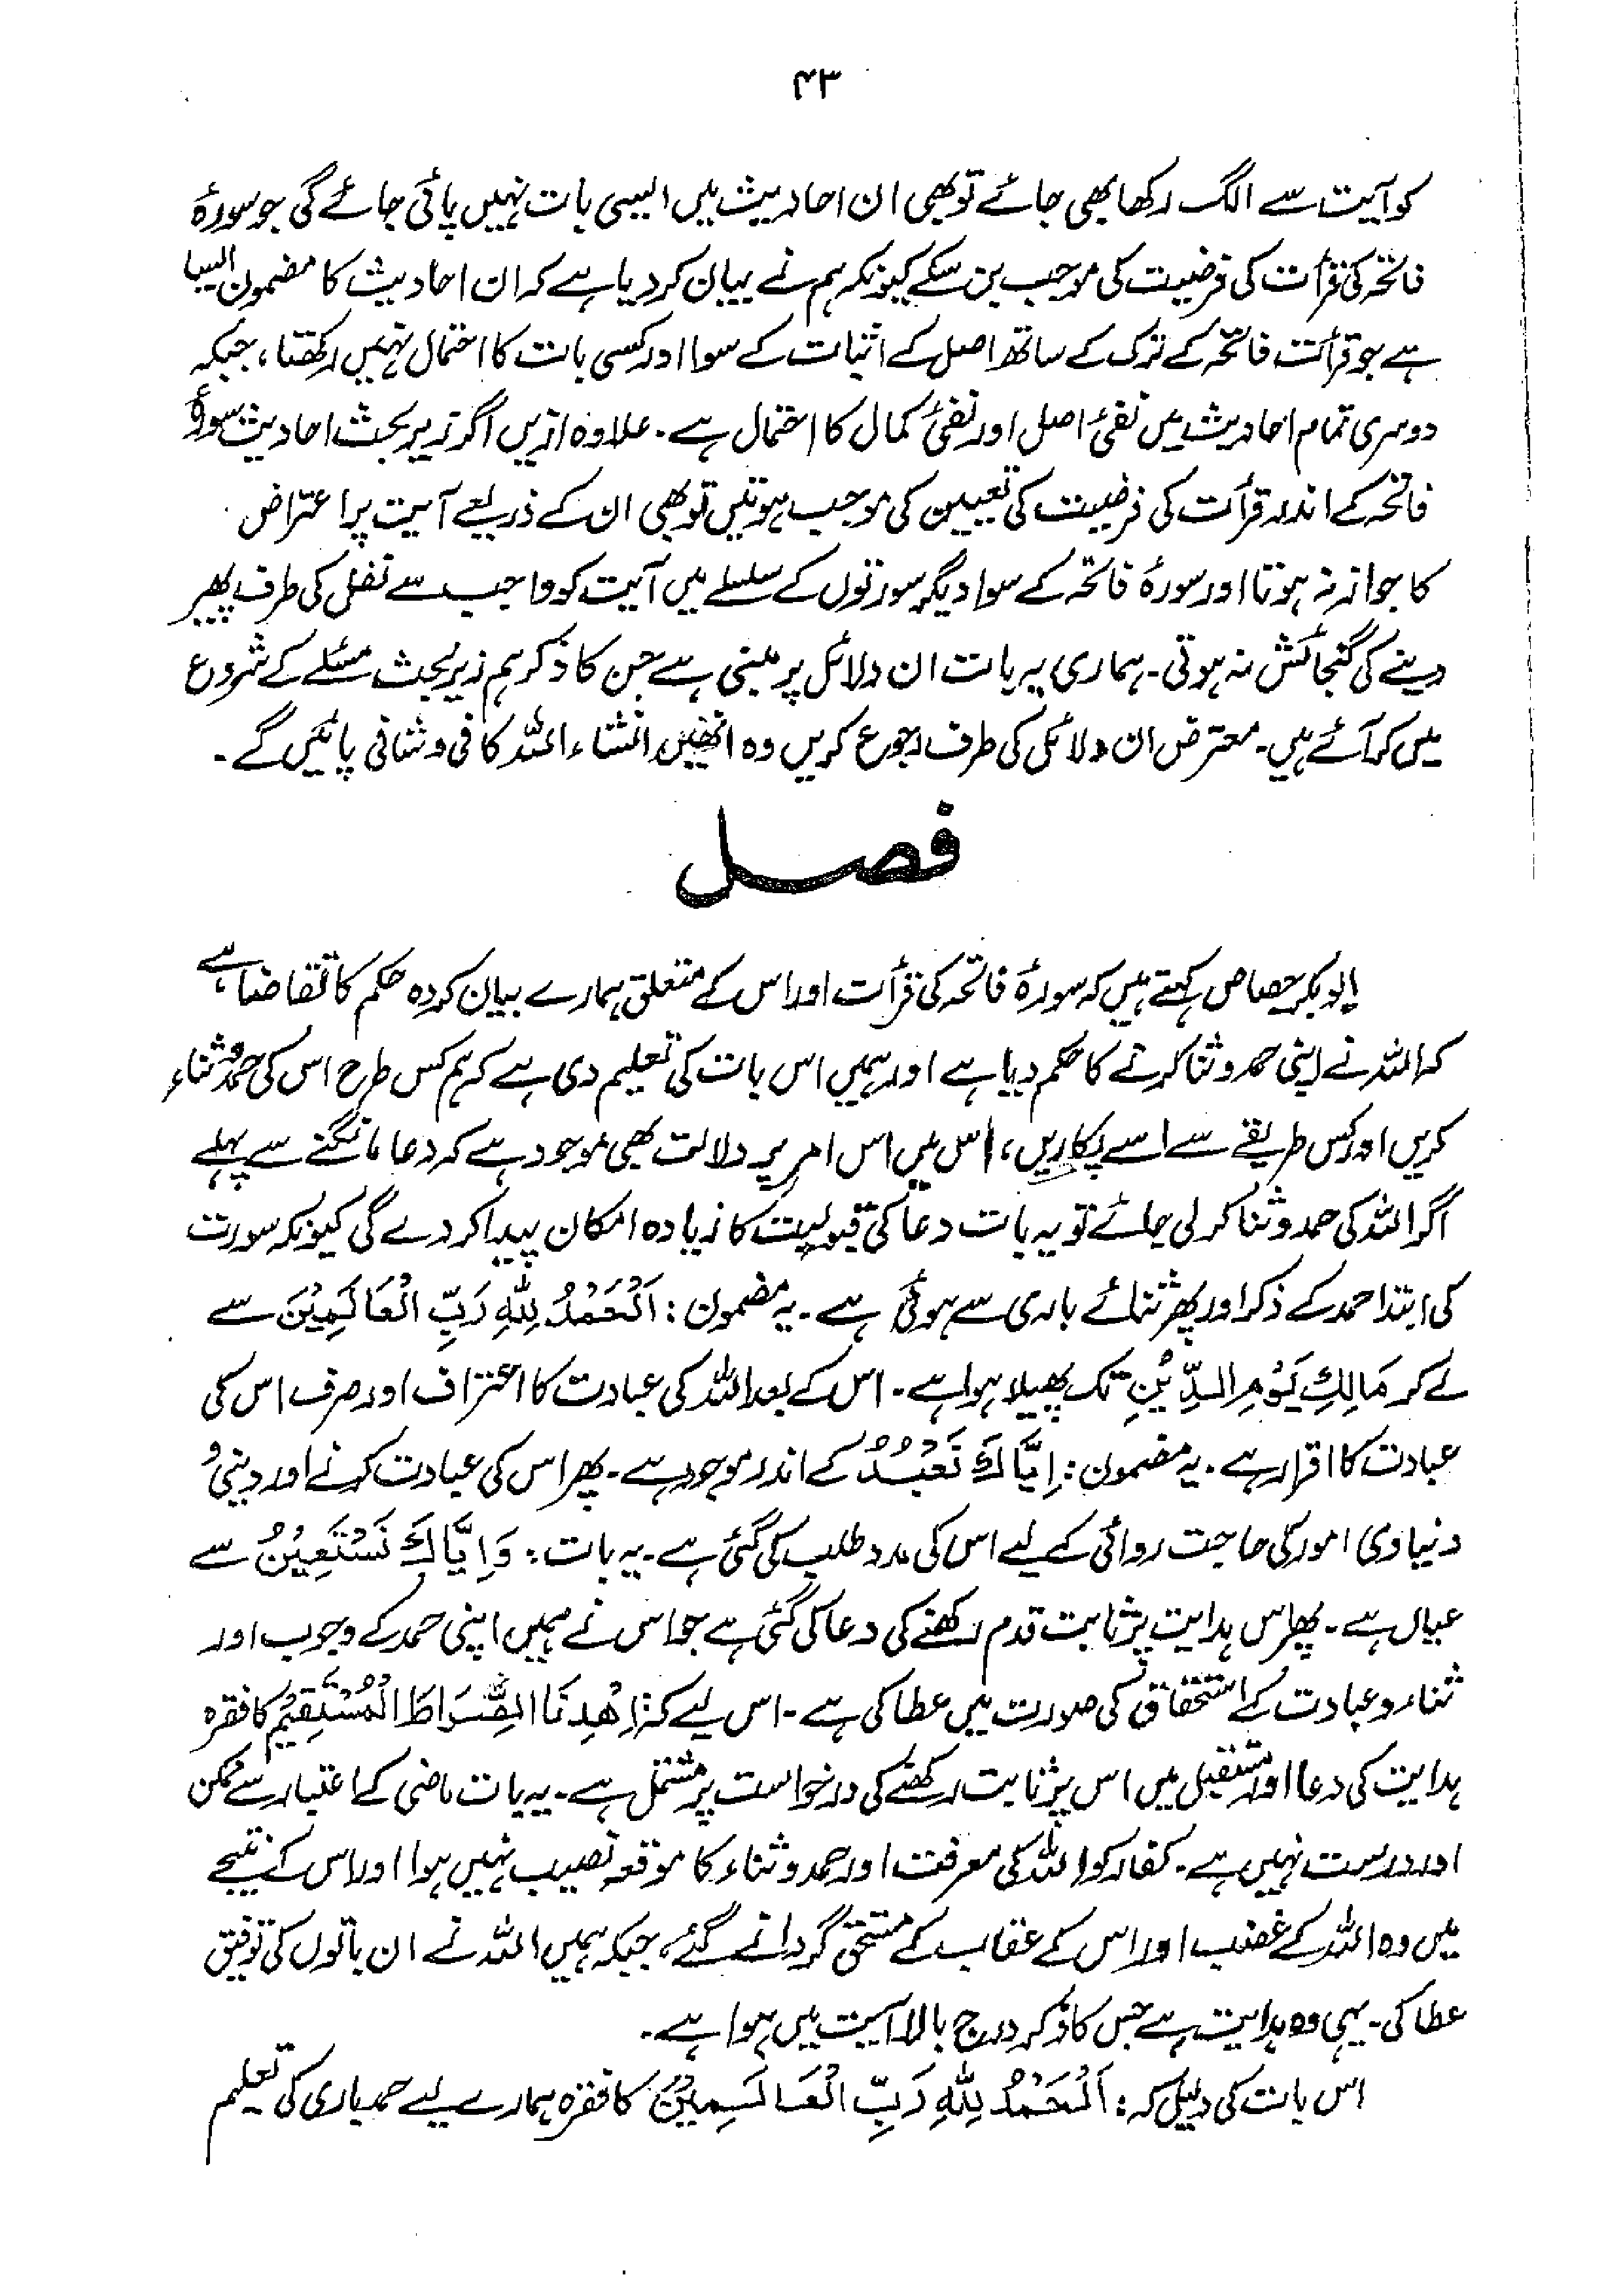 ۴۳
کو آیت سے الگ رکھا بھی جائے تو بھی ان احادیث میں ایسی بات نہیں پائی جائے گی جو سورۂ
فاتحہ کی قرأت کی فرضیت کی موجب بن سکے کیونکہ ہم نے بیان کر دیا ہے کہ ان احادیث کا مضمون ایسا
ہے جو قرأت فاتحہ کے ترک کے ساتھ اصل کے اثبات کے سوا اور کسی بات کا احتمال نہیں رکھتا، جبکہ
دوسری تمام احادیث میں نفئ اصل اور نفئ کمال کا احتمال ہے۔ علاوہ ازیں اگر زیر بحث احادیث سورۂ
فاتحہ کے اندر قرأت کی فرضیت کی تعیین کی موجب ہوتیں تو بھی ان کے ذریعے آیت پر اعتراض
کا جواز نہ ہوتا اور سورۂ فاتحہ کے سوا دیگر سورتوں کے سلسلے میں آیت کو واجب سے نفل کی طرف پھیر
دینے کی گنجائش نہ ہوتی۔ ہماری یہ بات ان دلائل پر مبنی ہے جن کا ذکر ہم زیر بحث مسئلے کے شروع
میں کر آئے ہیں۔ معترض ان دلائل کی طرف رجوع کریں وہ انھیں انشاء اللہ کافی و شافی پائیں گے۔
فصل
ابوبکر جصاص کہتے ہیں کہ سورۂ فاتحہ کی قرأت اور اس کے متعلق ہمارے بیان کردہ حکم کا تقاضا ہے
کہ اللہ نے اپنی حمد و ثنا کرنے کا حکم دیا ہے اور ہمیں اس بات کی تعلیم دی ہے کہ ہم کس طرح اس کی حمد و ثناء
کریں اور کس طریقے سے اسے پکاریں، اس میں اس امر پر دلالت بھی موجود ہے کہ دعا مانگنے سے پہلے
اگر اللہ کی حمد و ثنا کر لی جائے تو یہ بات دعا کی قبولیت کا زیادہ امکان پیدا کر دے گی کیونکہ سورت
کی ابتدا حمد کے ذکر اور پھر ثنائے باری سے ہوئی ہے۔ یہ مضمون: اَلْحَمْدُ لِلّٰهِ رَبِّ الْعَالَمِيْنَ سے
لے کر مَالِكِ يَوْمِ الدِّيْنِ تک پھیلا ہوا ہے۔ اس کے بعد اللہ کی عبادت کا اعتراف اور صرف اس کی
عبادت کا اقرار ہے۔ یہ مضمون: اِيَّاكَ نَعْبُدُ کے اندر موجود ہے۔ پھر اس کی عبادت کرنے اور دینی و
دنیاوی امور کی حاجت روائی کے لیے اس کی مدد طلب کی گئی ہے۔ یہ بات: وَاِيَّاكَ نَسْتَعِيْنُ سے
عیاں ہے۔ پھر اس ہدایت پر ثابت قدم رکھنے کی دعا کی گئی ہے جو اس نے ہمیں اپنی حمد کے وجوب اور
ثناء و عبادت کے استحقاق کی صورت میں عطا کی ہے۔ اس لیے کہ: اِهْدِنَا الصِّرَاطَ الْمُسْتَقِيْمَ کا فقرہ
ہدایت کی دعا اور مستقبل میں اس پر ثابت رکھنے کی درخواست پر مشتمل ہے۔ یہ بات ماضی کے اعتبار سے ممکن
اور درست نہیں ہے۔ کفار کو اللہ کی معرفت اور حمد و ثناء کا موقعہ نصیب نہیں ہوا اور اس کے نتیجے
میں وہ اللہ کے غضب اور اس کے عقاب کے مستحق گردانے گئے، جبکہ ہمیں اللہ نے ان باتوں کی توفیق
عطا کی۔ یہی وہ ہدایت ہے جس کا ذکر درج بالا آیت میں ہوا ہے۔
اس بات کی دلیل کہ: اَلْحَمْدُ لِلّٰهِ رَبِّ الْعَالَمِيْنَ کا فقرہ ہمارے لیے حمد باری کی تعلیم